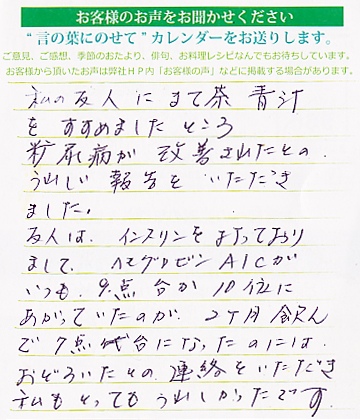 お客様のお声をお聞かせください
“言の葉にのせて”カレンダーをお送りします。
ご意見、ご感想、季節のおたより、俳句、お料理レシピなんでもお待ちしています。
お客様から頂いたお声は弊社HP内「お客様の声」などに掲載する場合があります。
私の友人にまで茶青汁
をすすめましたところ
糖尿病が改善されたとの
うれしい報告をいただき
ました。
友人は、インスリンをはなっており
まして、ヘモグロビンA1Cが
いつも、9点台か10位に
あがっていたのが、2ケ月飲ん
で7点代台になったのには
おどろいたとの、連絡をいただき
私もとってもうれしかったです